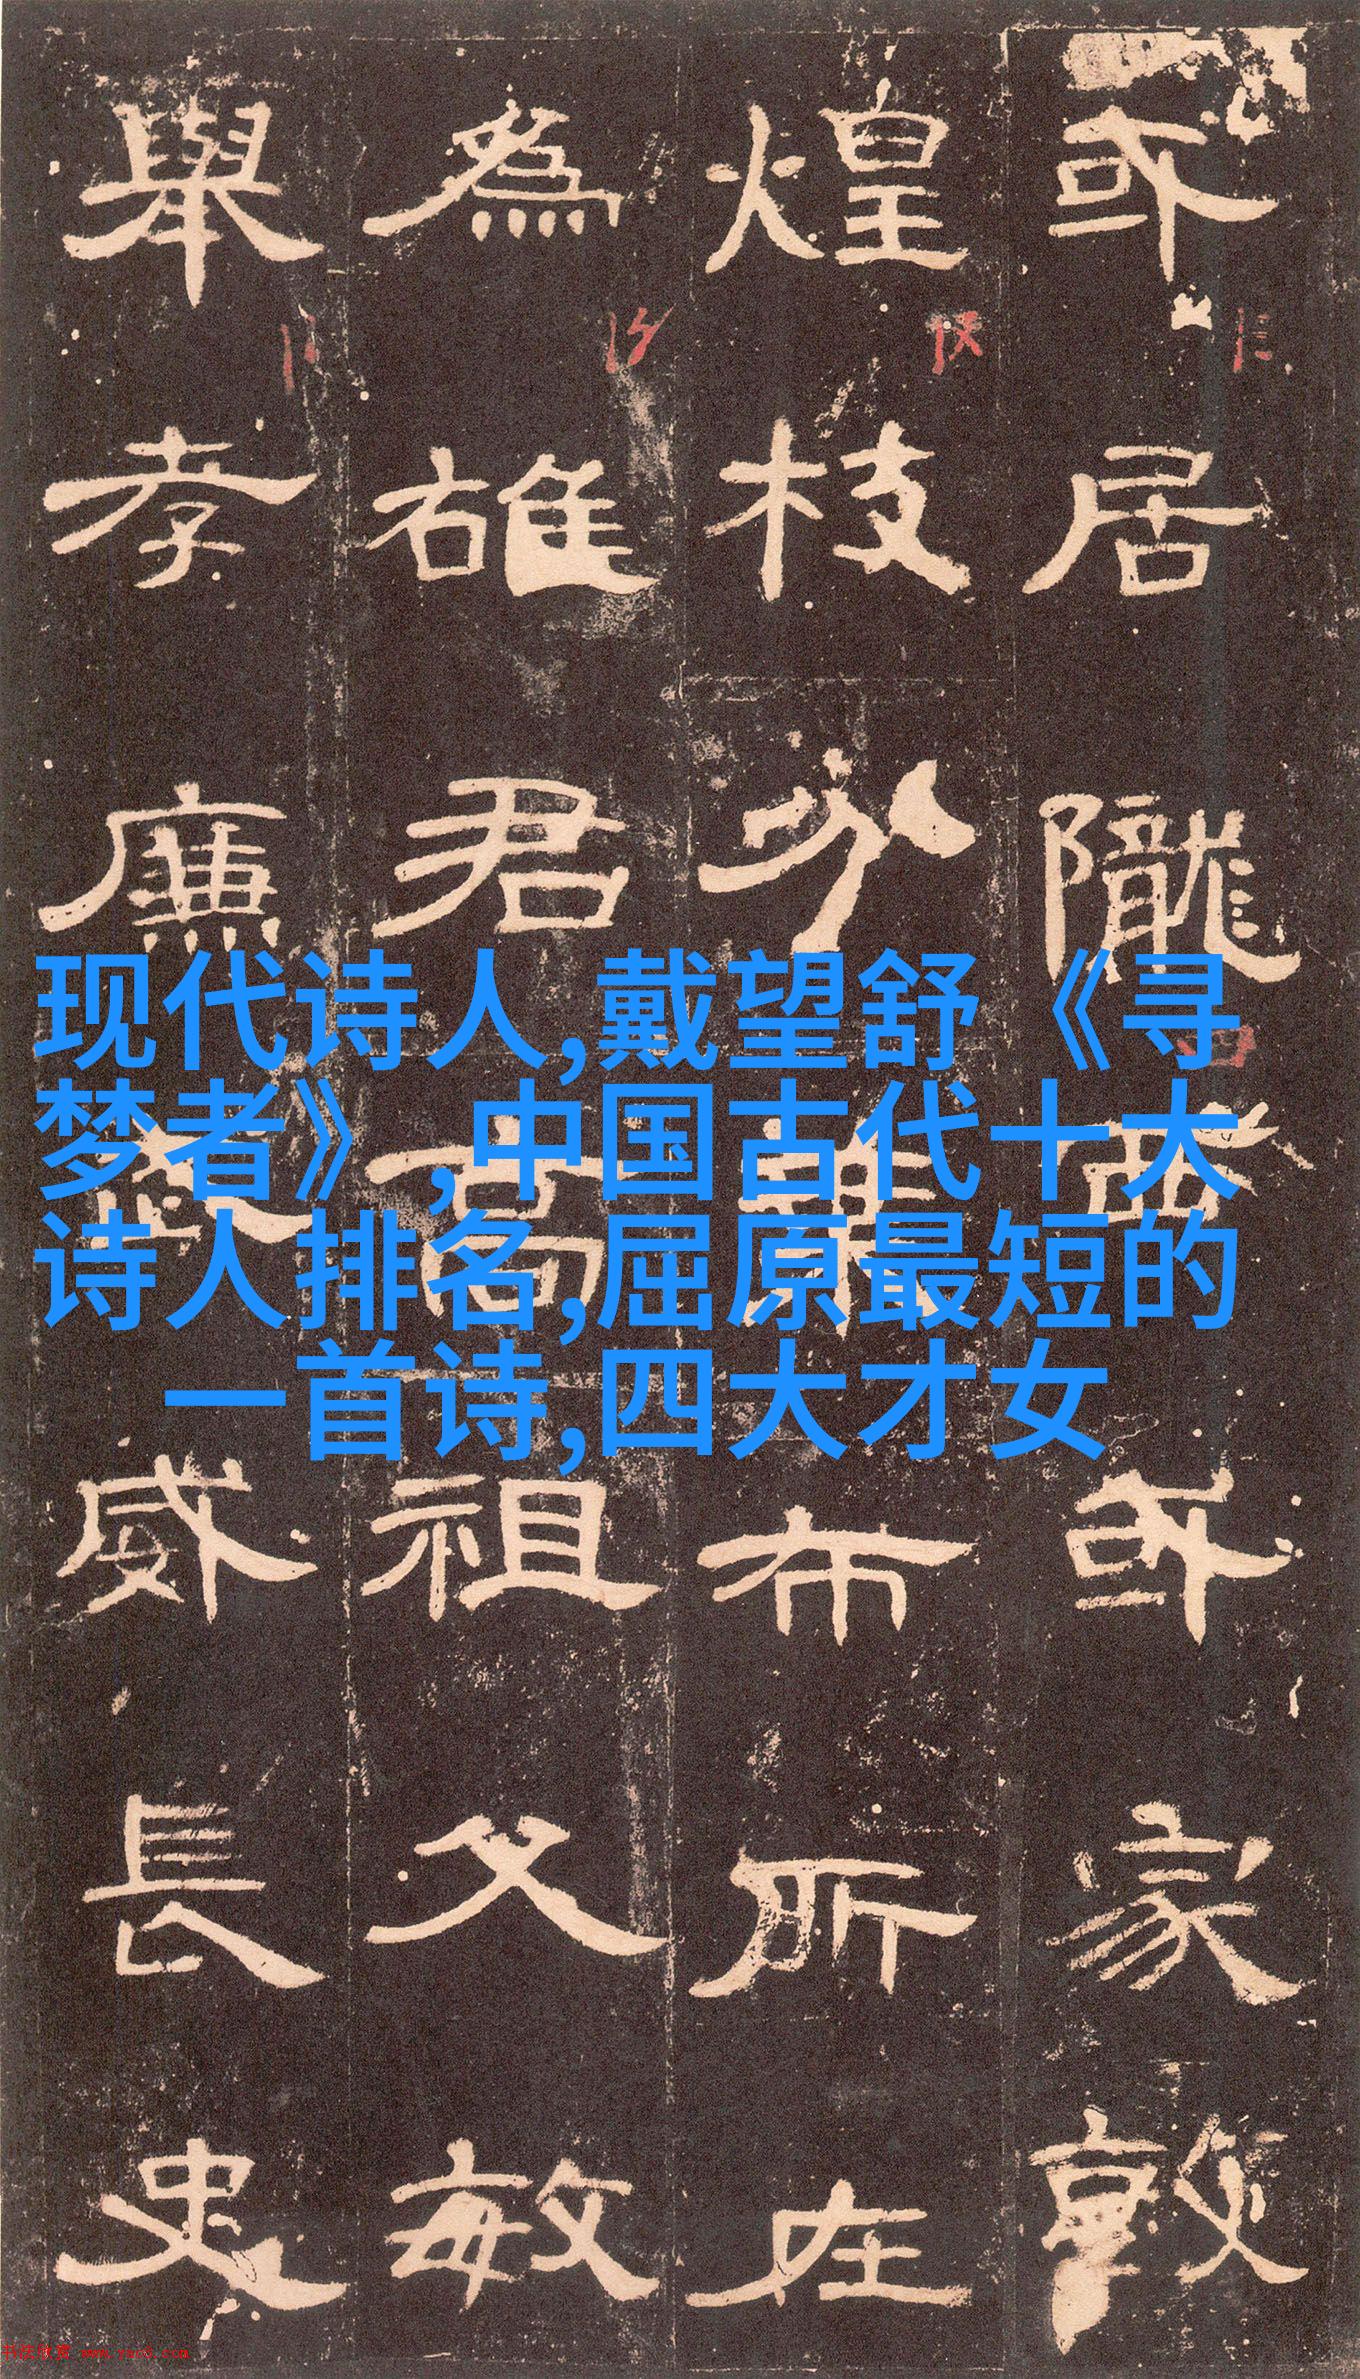 或居隴西或家敦
煌枝分葉布所在
為雄君高祖父敏
舉孝廉武威長史
现代诗人,戴望舒《寻
梦者》,中国古代十大
诗人排名,屈原最短的
一首诗,四大才女
书法欣赏 www.yac8.com